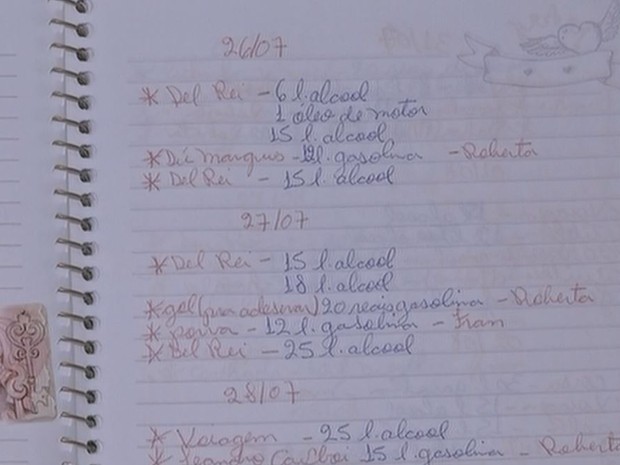 26/07
* Del Rei - 6 l. alcool
1 óleo de motor
15 l. alcool
* Dic Marquis - 12 l. gasolina - Roberta
* Del Rei - 15 l. alcool
27/07
* Del Rei - 15 l. alcool
18 l. alcool
* gol (pra adesivar) 20 reais gasolina - Roberta
* - 12 l. gasolina - Fran
* Del Rei - 25 l. alcool
28/07
* Voiagem - 25 l. alcool
* Leandro 15 l. gasolina - Roberta